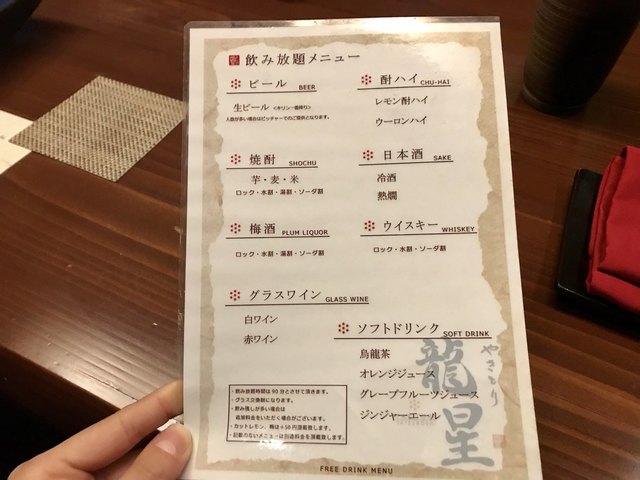 飲み放題メニュー
ビール BEER
生ビール <キリン一番搾り>
人数が多い場合はピッチャーでのご提供となります。
酎ハイ CHU-HAI
レモン酎ハイ
ウーロンハイ
焼酎 SHOCHU
芋・麦・米
ロック・水割・湯割・ソーダ割
日本酒 SAKE
冷酒
熱燗
梅酒 PLUM LIQUOR
ロック・水割・湯割・ソーダ割
ウイスキー WHISKEY
ロック・水割・ソーダ割
グラスワイン GLASS WINE
白ワイン
赤ワイン
ソフトドリンク SOFT DRINK
烏龍茶
オレンジジュース
グレープフルーツジュース
ジンジャーエール
・飲み放題時間は90分とさせて頂きます。
・グラス交換制になります。
・飲み残しが多い場合は
追加料金をいただく場合がございます。
・カットレモン、梅は+50円頂戴致します。
・記載のないメニューは別途料金を頂戴致します。
やきとり
龍星
FREE DRINK MENU